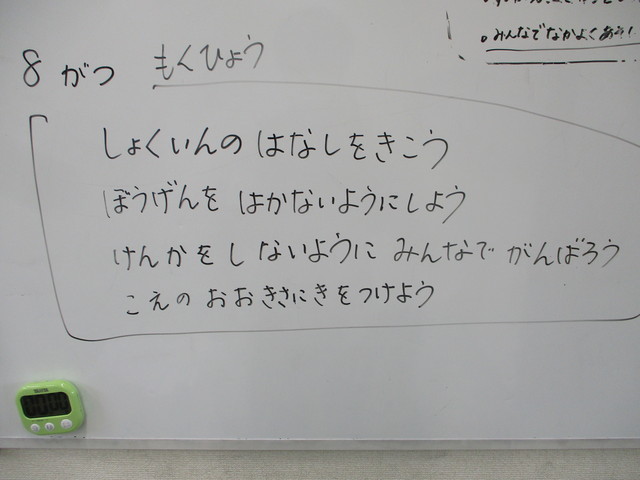 。みんなでなかよくあそ
8がつ もくひょう
しょくいんの はなしをきこう
ぼうげんを はかないようにしよう
けんかをしないように みんなで がんばろう
こえの おおきさにきをつけよう